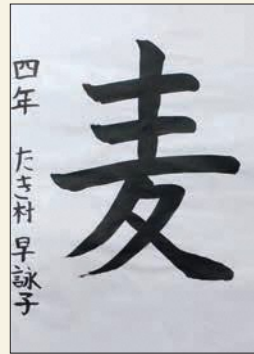 麦
四年 たき村 早詠子